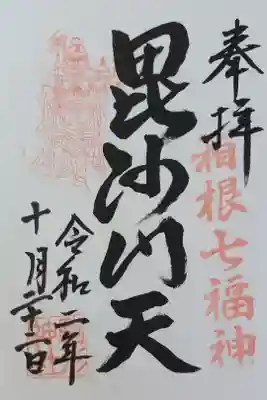 奉拝
箱根七福神
毘沙门天
令和二年
十月二十二日